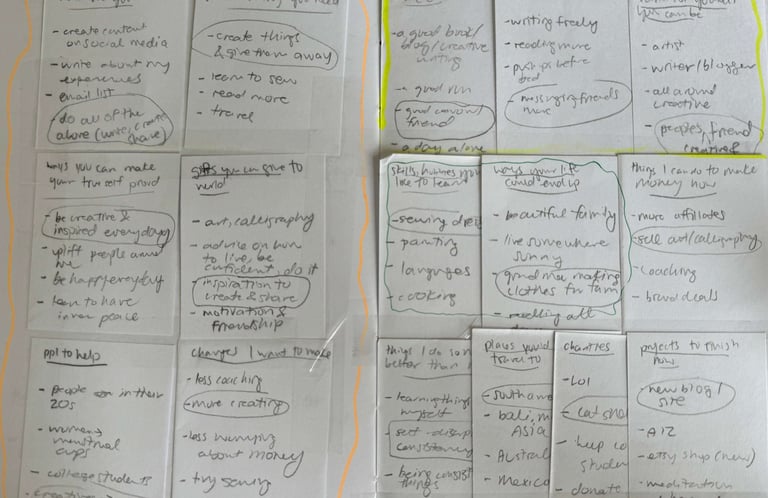 - create content
on social media
- write about my
experiences
- email list
- do all of the
above (write, create
share)
- create things
& give them away
- learn to sew
- read more
- travel
- a good book/
blog/creative
writing
- a good run
- good convo w/
friend
- a day alone
- writing freely
- reading more
- push ups before
bed
- messaging friends
more
you can be
- artist
- writer/blogger
- all around
creative
- peoples friend
creative
ways you can make
your true self proud
- be creative &
inspired everyday
- uplift people around
me
- be happy everyday
- learn to have
inner peace
gifts you can give to
world
- art, calligraphy
- advice on how
to live, be
confident, do it
- inspiration to
create & share
- motivation &
friendship
skills, hobbies you'd
like to learn
- sewing
- painting
- languages
- cooking
ways your life
could end up
- beautiful family
- live somewhere
sunny
- grandma making
clothes for fam
- reading all
things I can do to make
money now
- more affiliates
- sell art/calligraphy
- coaching
- brand deals
ppl to help
- people in their
20s
- women's
menstrual
cups
- college students
- creatives
changes I want to make
- less coaching
- more creating
- less worrying
about money
- try sewing
things I do
better than
- learning things
myself
- self-discip
consistency
- being consist
things
places
travel to
- south am
- bali,
ASIA
- Austral
- Mexico
charities
- LOI
- cat
- help co
studen
- donate
projects to finish
now
- new blog/
site
- A12
- etsy shop (new)
- meditation